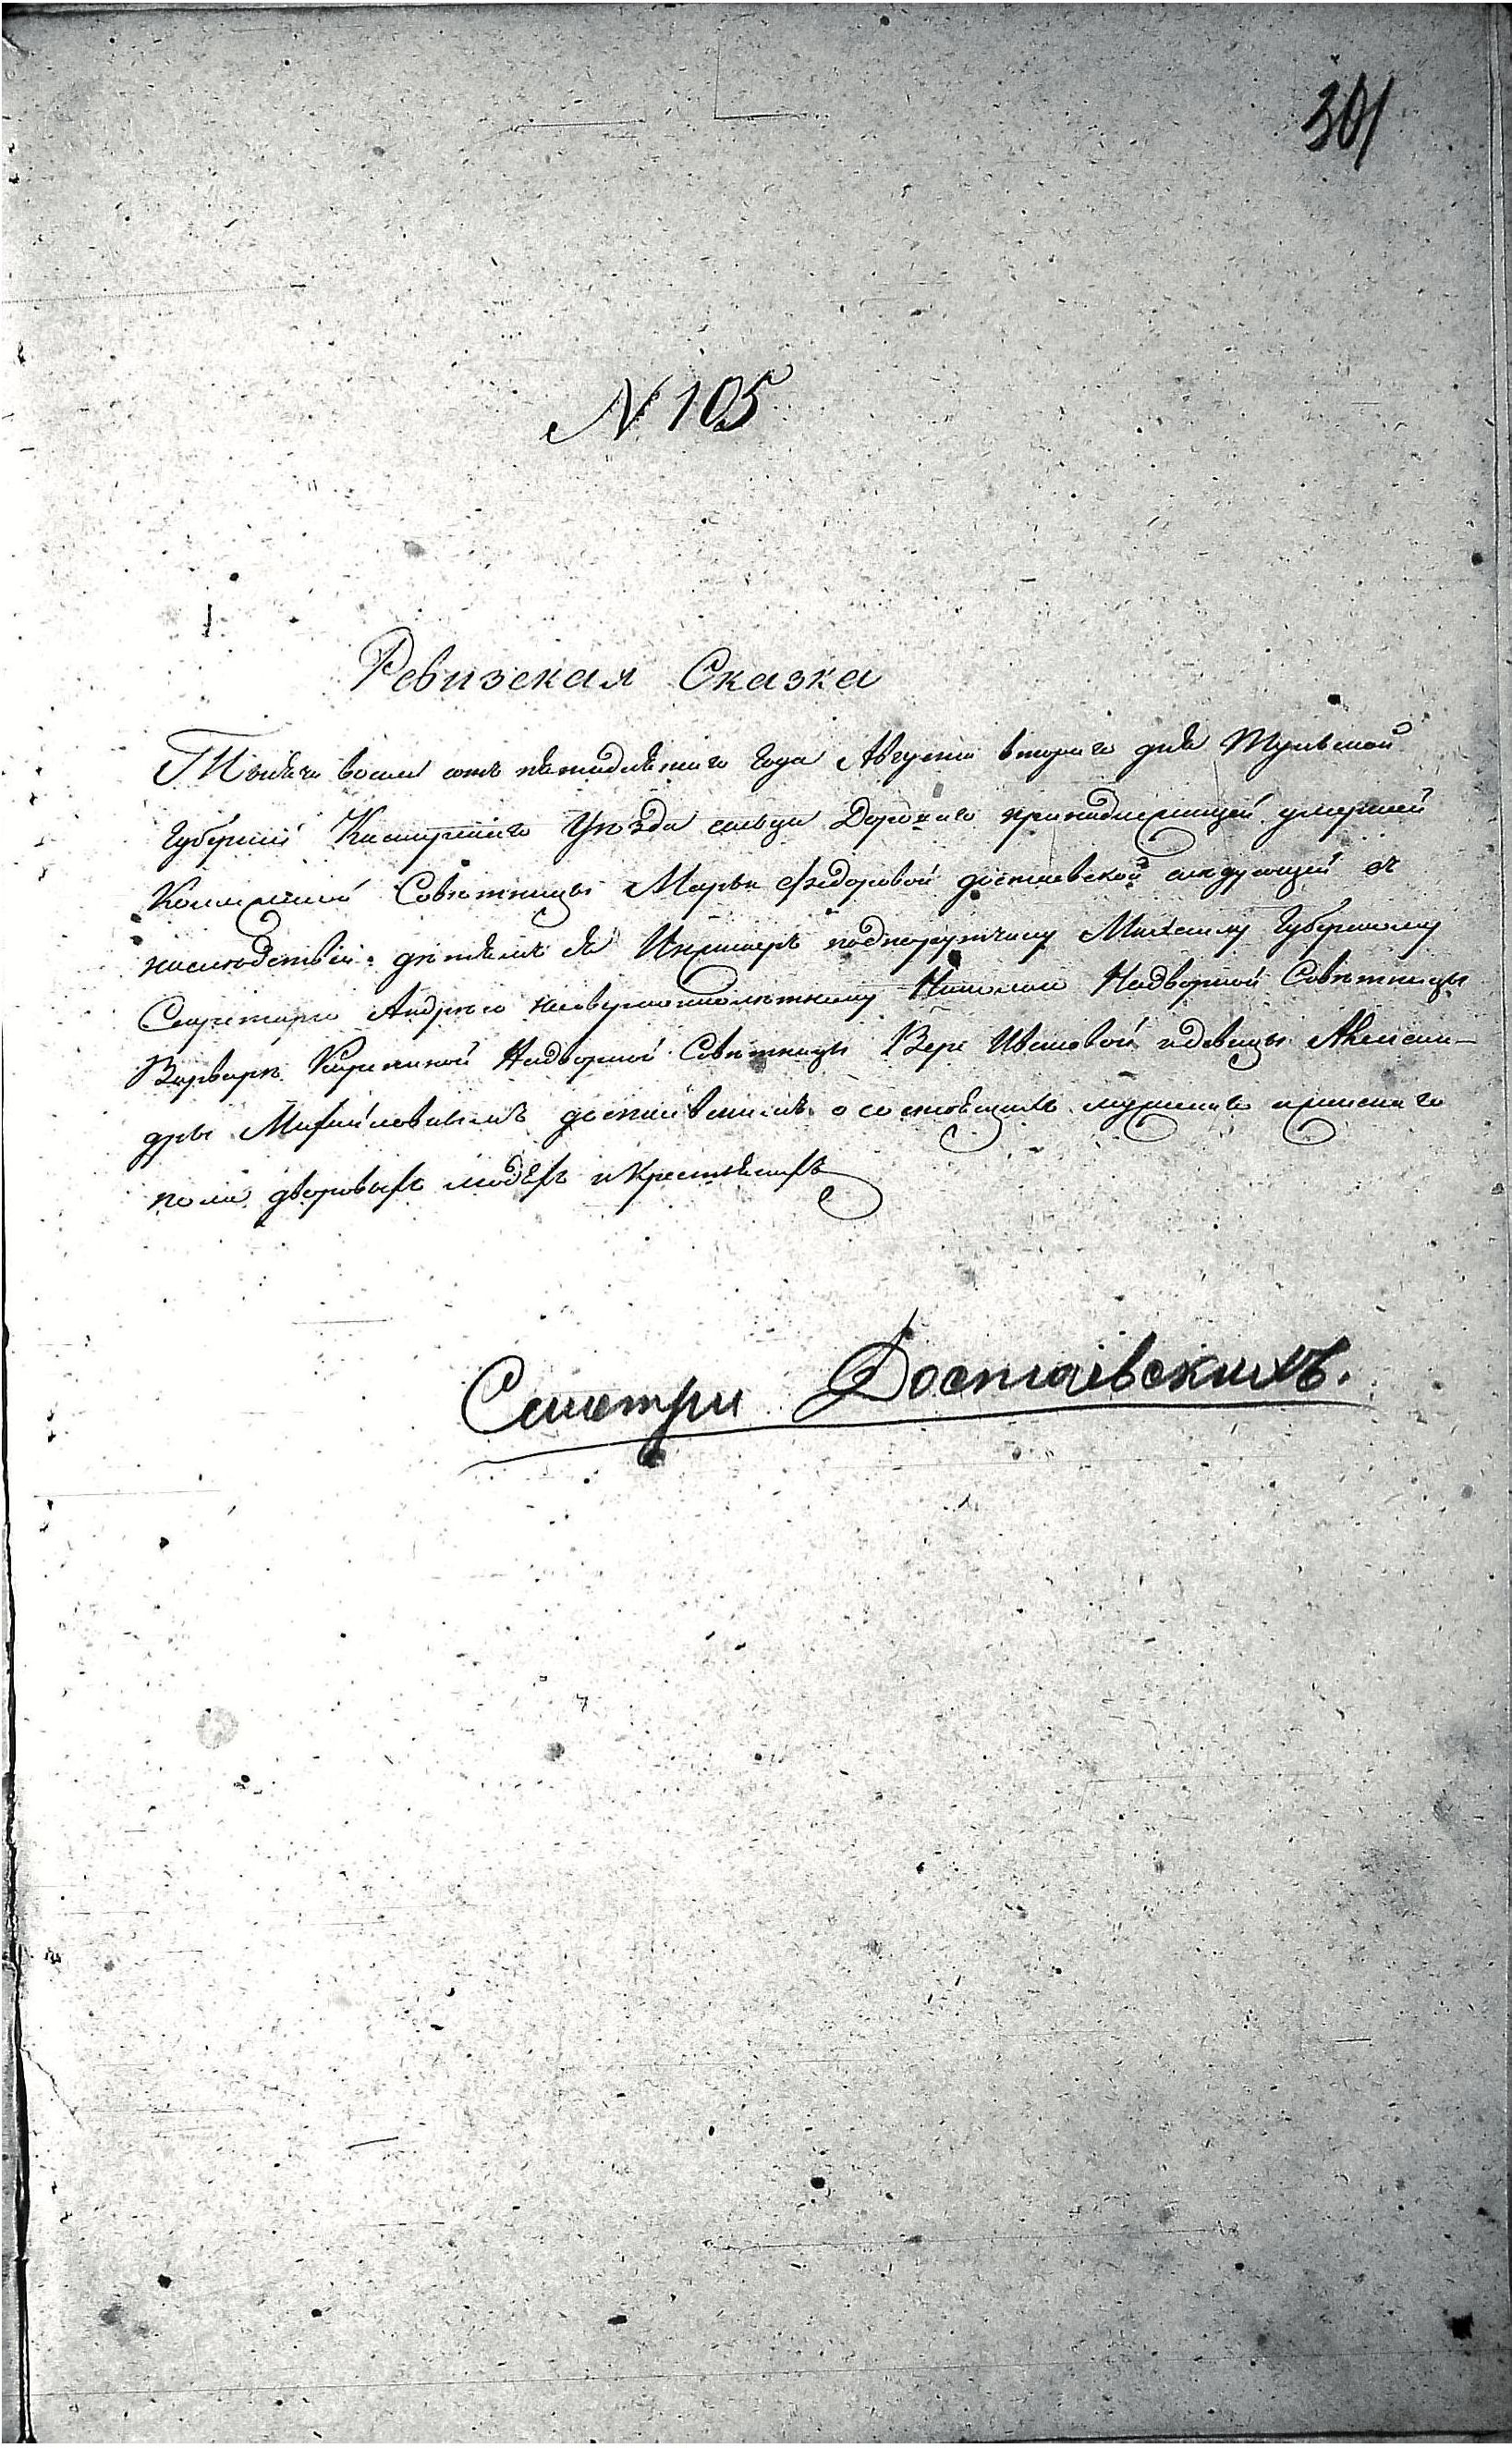 301
N 105
Ревизская Сказка
Тысяча восемь сотъ пятидесятаго года Августа втораго дня Тульской
Губерніи Каширскаго Уѣзда сельца Дороваго принадлежащей умершей
Коллежской Совѣтницы Марьи Федоровой достаевской слѣдующей въ
наслѣдствіе дѣтямъ ея Инженеръ подпорутчику Михаилу Губернскому
Секретарю Андрею несовершеннолѣтнему Николаю Надворной Совѣтницы
Варварѣ Карепиной Надворной Совѣтницы Вере Ивановой и девицы Алексан-
дры Михайловымъ достаевскимъ о состоящихъ мужеска и женскаго
пола дворовыхъ людяхъ и Крестьянахъ
Смотри Достаевскихъ.